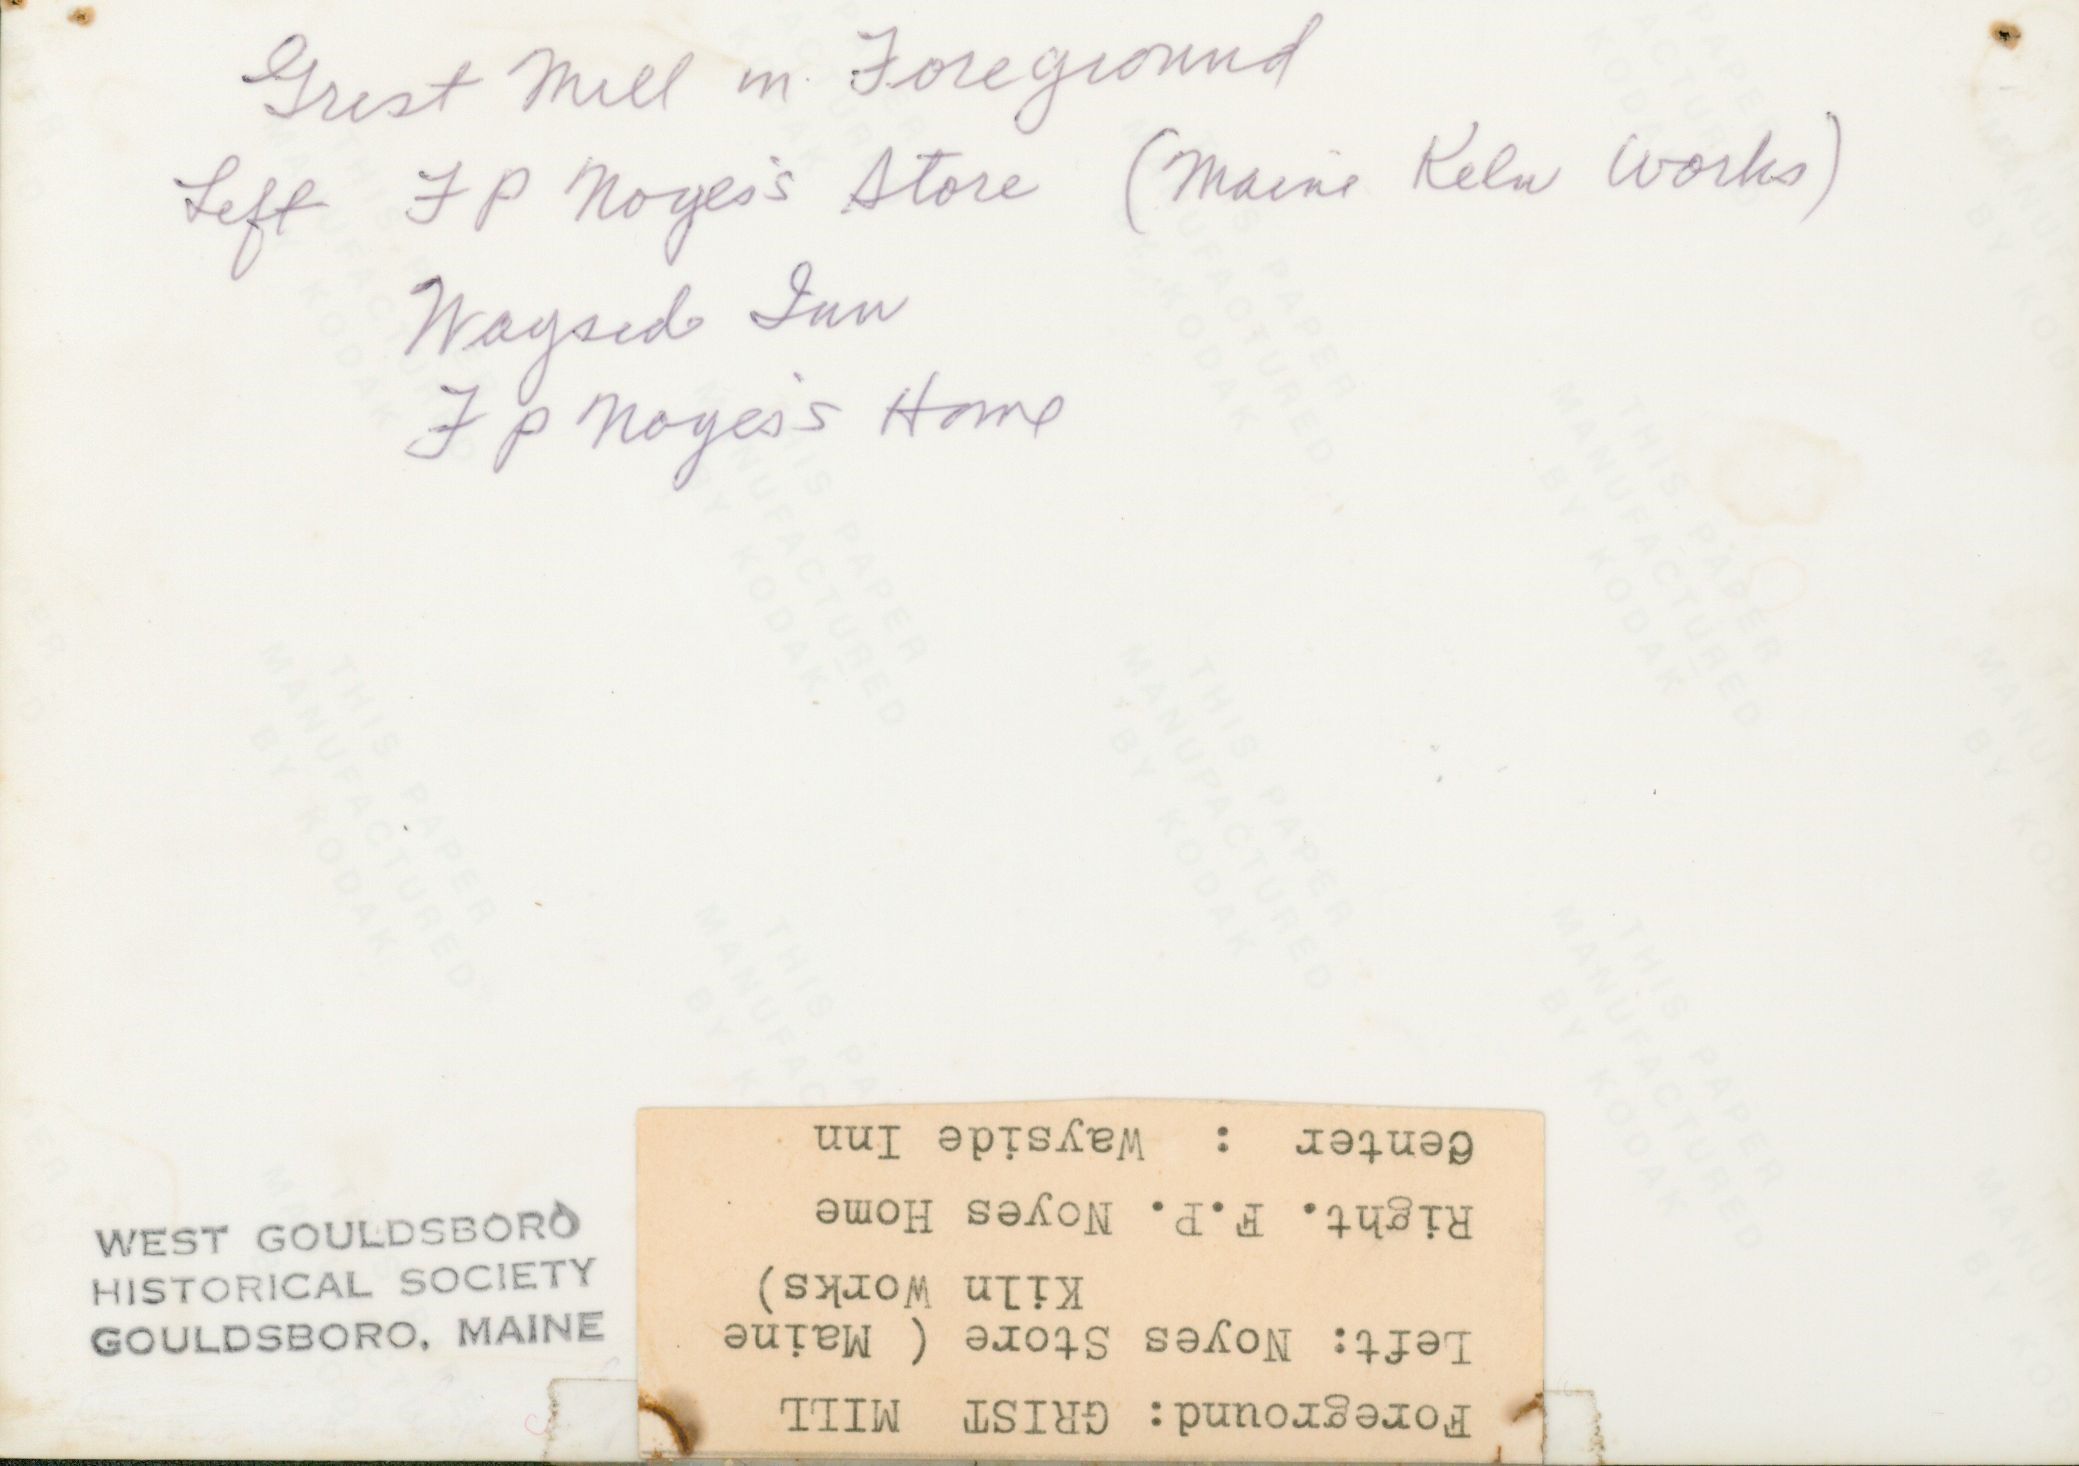 Grist Mill in Foreground
Left F P Noyes's Store (Maine Keln Works)
Wayside Inn
F P Noyes's Home
WEST GOULDSBORO
HISTORICAL SOCIETY
GOULDSBORO, MAINE
Foreground: GRIST MILL
Left: Noyes Store ( Maine
Kiln Works)
Right. F.P. Noyes Home
Center : Wayside Inn
THIS PAPER
MANUFACTURED
BY KODAK